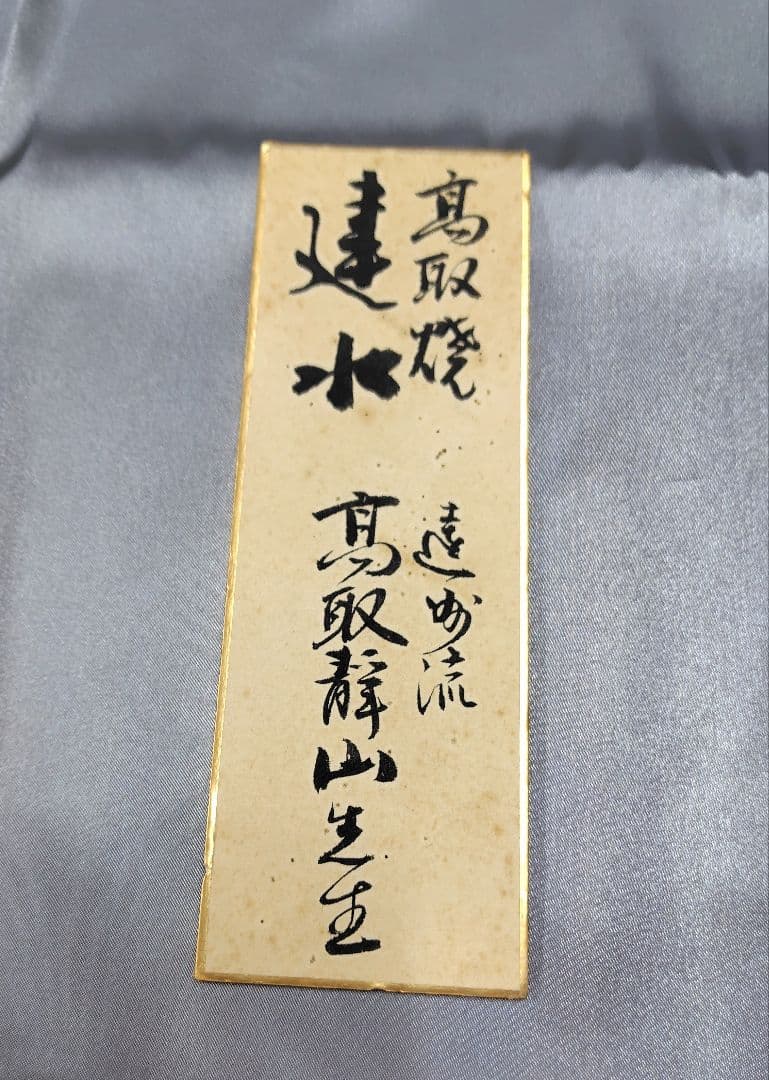 高取焼
遠州流
建水
高取静山先生